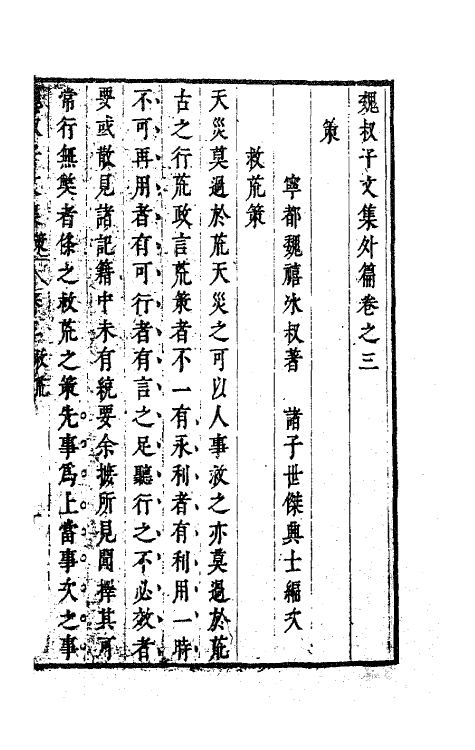 魏叔子文集外篇卷之三
策
寧都魏禧冰叔著　諸子世傑興士編次
救荒策
天災莫過於荒天災之可以人事救之亦莫過於荒
古之行荒政言荒策者不一有永利者有利用一時
不可再用者有可行者有言之足聽行之不必效者
要或散見諸記籍中未有統要余摭所見聞擇其可
常行無獘者條之救荒之策先事為上當事次之事